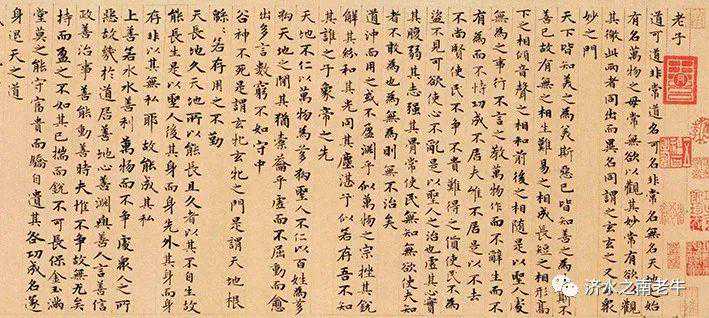 老子
道可道非常道名可名非常名無名天地始
有名萬物之母常無欲以觀其妙常有欲以觀
其徼此兩者同出而異名同謂之玄玄之又玄衆
妙之門
天下皆知美之為美斯惡已皆知善之為善斯不
善已故有無之相生難易之相成長短之相形高
下之相傾音聲之相和前後之相隨是以聖人處
無為之事行不言之教萬物作而不辭生而不
有為而不恃功成不居夫惟不居是以不去
不尚賢使民不爭不貴難得之貨使民不為
盜不見可欲使心不亂是以聖人之治也虛其心實
其腹弱其志強其骨常使民無知無欲使夫知
者不敢為也為無為則無不治矣
道沖而用之或不盈淵乎似萬物之宗挫其銳
解其紛和其光同其塵湛乎似若存吾不知
其誰之子象帝之先
天地不仁萬物為芻狗聖人不仁以百姓為芻
狗天地之間其猶橐籥乎虛而不屈動而愈
出多言數窮不如守中
谷神不死是謂玄牝玄牝之門是謂天地根
緜若存用之不勤
天長地久天地所以能長且久者以其不自生故
能長生是以聖人後其身而身先外其身而身
存非以其無私耶故能成其私
上善若水水善利萬物而不爭處衆人之所
惡故幾於道居善地心善淵與善人言善信
政善治事善能動善時夫惟不爭故無尤矣
持而盈之不如其已揣而銳不可長保金玉滿
堂莫之能守富貴而驕自遺其咎功成名遂
身退天之道
济水之南老牛